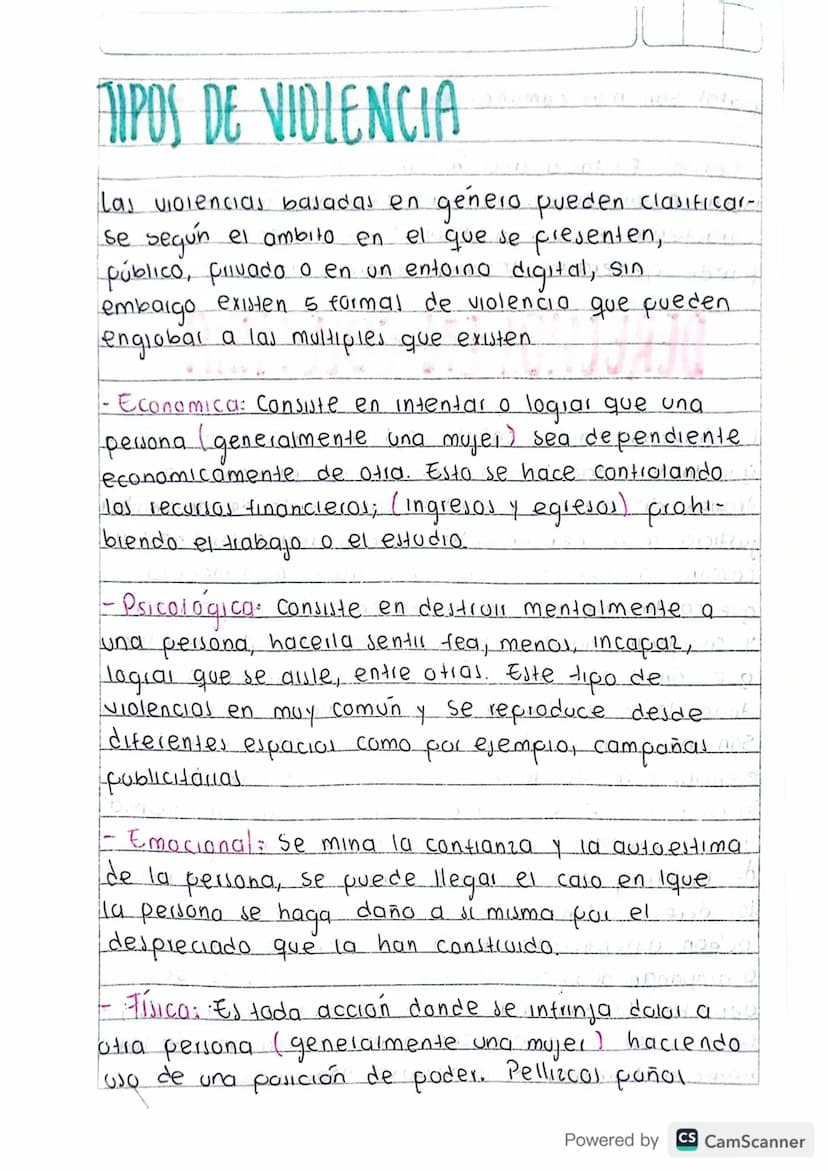 TIPOS DE VIOLENCIA
Las violencias basadas en género pueden clasificar-
se según el ambito en el que se presenten,
público, privado o en un entorno digital, sin
embargo existen 5 formal de violencia que pueden
englobar a las multiples que existen
- Economica: Consiste en intentar o lograr que una
persona (generalmente una mujer) sea dependiente
economicamente de otra. Esto se hace controlando
los recursos financieros; (ingresos y egresos) prohi-
biendo el trabajo o el estudio.
- Psicológica: Consiste en destruir mentalmente a
una persona, hacerla sentir fea, menos, incapaz,
lograr que se aisle, entre otras. Este tipo de
violencias en muy común y se reproduce desde
diferentes espacios como por ejemplo, campañas
publicitarias
- Emocional: Se mina la confianza y la autoestima
de la persona, se puede llegar el caso en lque
la persona se haga daño a sí misma por el
despreciado que la han construido.
- Física: Es toda acción donde se infrinja dolor a
otra persona (generalmente una mujer) haciendo
uso de una posición de poder. Pellizcos puñol
Powered by CS CamScanner